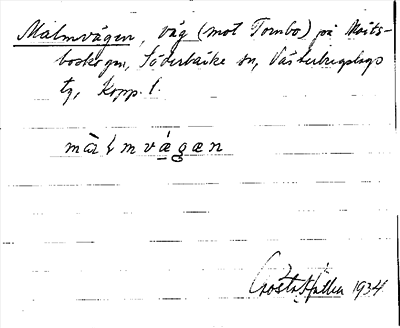 Malmvägen, väg (mot Tombo) på Mats-
boskogen, Söderbärke sn, Västerbergslags
tg, Kopp. l.
màlmvǽgæn
Gösta Hallén 1934